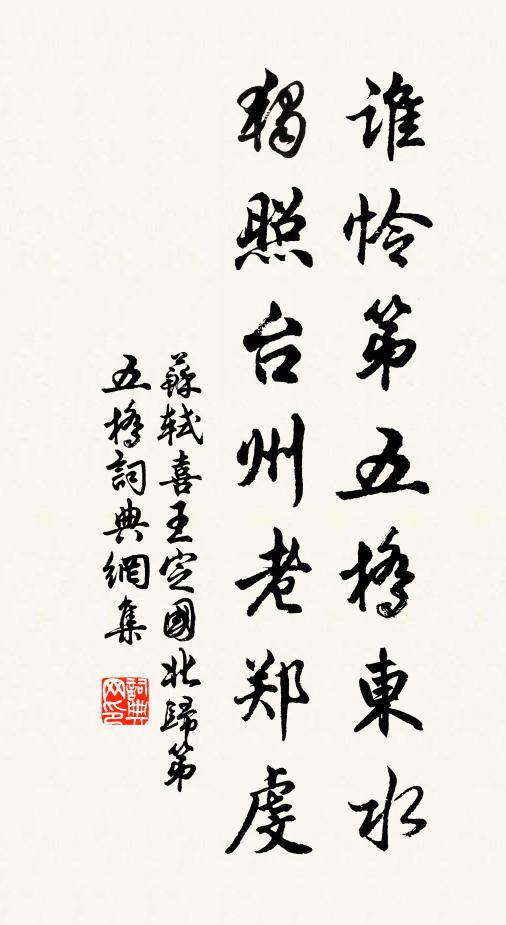 誰怜第五橋東水
獨照台州老郑虔
蘇軾喜王定國北歸第
五橋詞典網集
詞典
网印